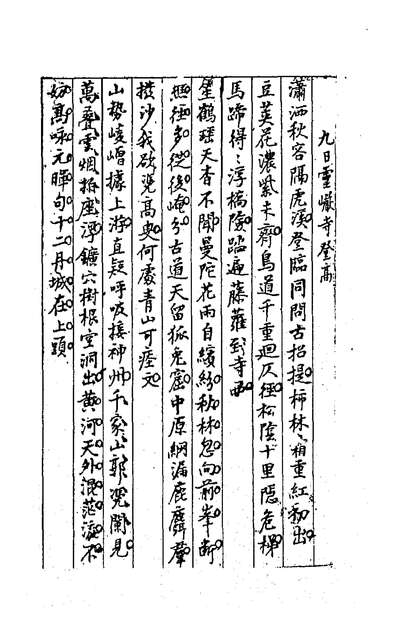 九日靈巖寺登高
瀟洒秋容隔虎溪登臨同問古招提柿林霜重紅初出
豆莢花濃紫未齊鳥道千重迴仄徑松陰十里隱危梯
馬蹄得得浮橋陵踏遍藤蘿到寺西
笙鶴瑤天杳不聞曼陀花雨自繽紛秋林忽向前峯斷
照徑多從後崦分古道天留狐兔窟中原網漏鹿麛羣
搜沙我欲覓高奥何處青山可瘞文
山勢崚嶒據上游直疑呼吸接神州千家山郭凭闌見
萬疊雲烟拓座浮鑛穴樹根空洞出黄河天外混茫流不
妨高咏元暉句十二丹城在上頭